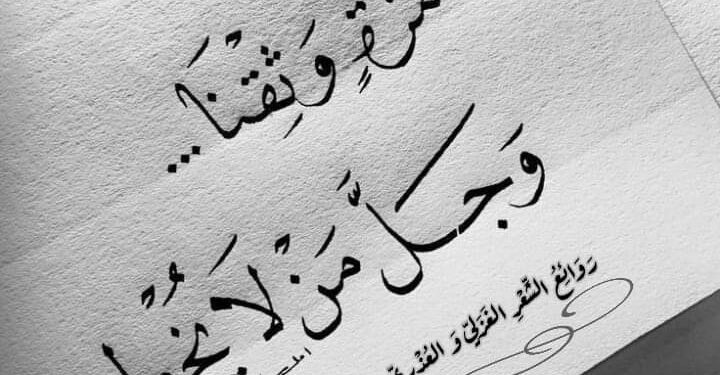 وَثِقْنَا...
وَجَلَّ مَنْ لَا
رَوَائِعُ الشِّعْرِ الغَزَلِيِّ وَ العُذْرِيِّ